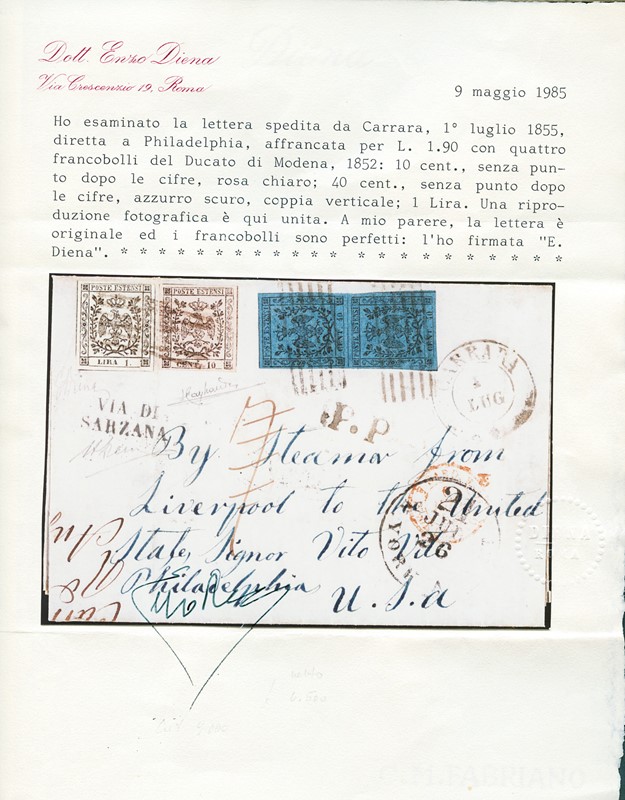 Dott. Enzo Diena
Via Crescenzio 19, Roma
9 maggio 1985
Ho esaminato la lettera spedita da Carrara, 1° luglio 1855,
diretta a Philadelphia, affrancata per L. 1.90 con quattro
francobolli del Ducato di Modena, 1852: 10 cent., senza pun-
to dopo le cifre, rosa chiaro; 40 cent., senza punto dopo
le cifre, azzurro scuro, coppia verticale; 1 Lira. Una ripro-
duzione fotografica è qui unita. A mio parere, la lettera è
originale ed i francobolli sono perfetti: l'ho firmata "E.
Diena". * * * * * * * * * * * * * * * * * * * * * * *
POSTE ESTENSI
LIRA 1.
POSTE ESTENSI
CENT. 10
POSTE ESTENSI
POSTE ESTENSI
CARRARA
LUG
VIA DI
SARZANA
P.P
By Steamer from
Liverpool to the United
State, Signor Vito Viti
Philadelphia
U.S.a
21